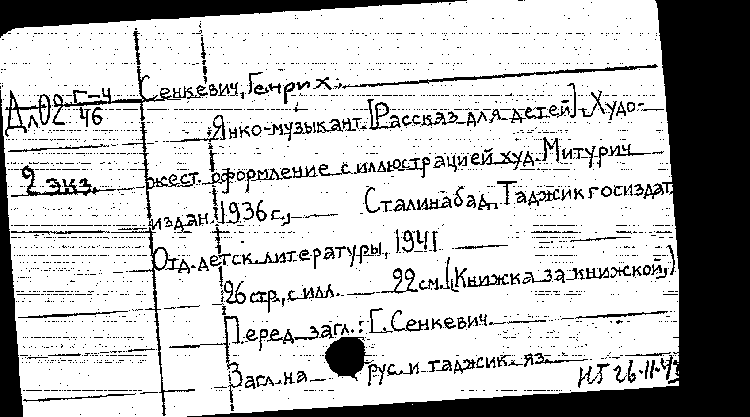 Сенкевич, Генрих.
Дл02 Г-4/46
Янко-музыкант. [Рассказ для детей]. Худо-
2 экз.
жест. оформление с иллюстрацией худ. Митурич
издан. 1936 г., Сталинабад, Таджикгосиздат,
Отд. детск. литературы, 1941
26 стр., с илл. 22 см. (Книжка за книжкой,)
Перед загл.: Г. Сенкевич.
Загл. на рус. и таджик. яз.